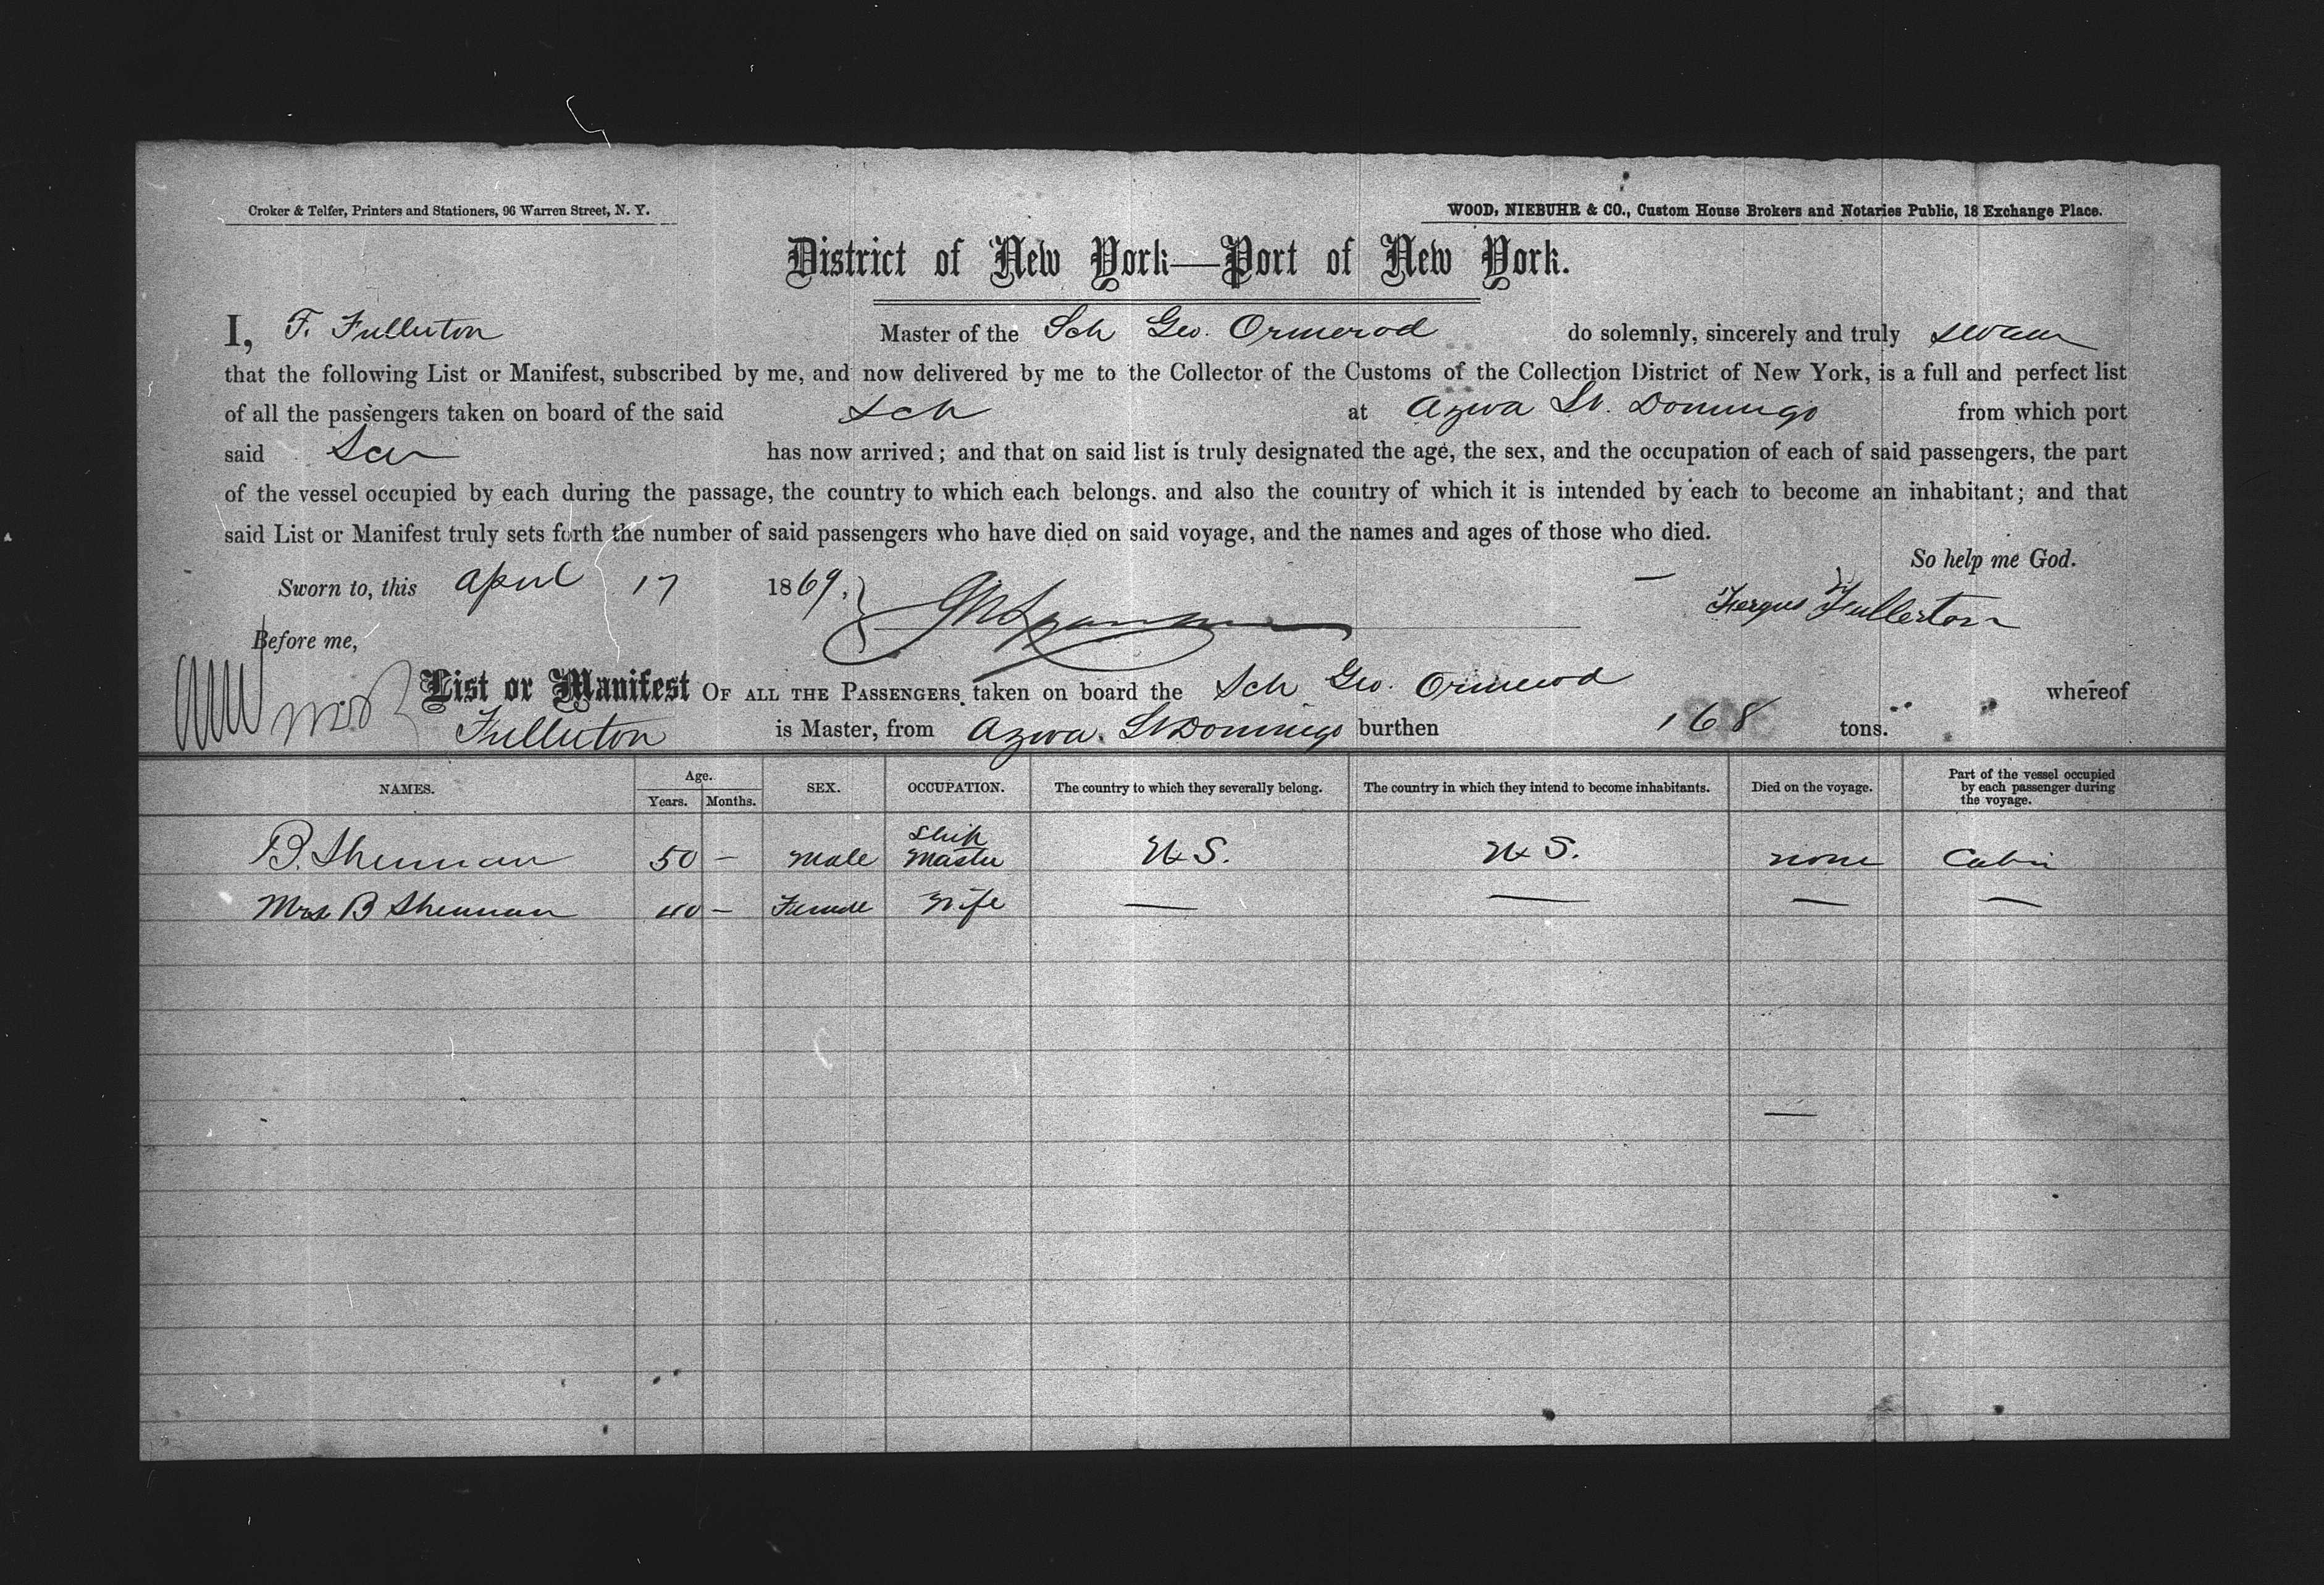 Croker & Telfer, Printers and Stationers, 96 Warren Street, N. Y.
WOOD, NIEBUHR & CO., Custom House Brokers and Notaries Public, 18 Exchange Place.
District of New York—Port of New York.
I, F. Fullerton Master of the Sch Geo. Ormerod do solemnly, sincerely and truly swear
that the following List or Manifest, subscribed by me, and now delivered by me to the Collector of the Customs of the Collection District of New York, is a full and perfect list
of all the passengers taken on board of the said Sch at Azua St. Domingo from which port
said Sch has now arrived; and that on said list is truly designated the age, the sex, and the occupation of each of said passengers, the part
of the vessel occupied by each during the passage, the country to which each belongs. and also the country of which it is intended by each to become an inhabitant; and that
said List or Manifest truly sets forth the number of said passengers who have died on said voyage, and the names and ages of those who died.
So help me God.
Sworn to, this April 17 1869.
Fergus Fullerton
Before me,
List or Manifest OF ALL THE PASSENGERS taken on board the Sch Geo. Ormerod whereof
Fullerton is Master, from Azua. St Domingo burthen 168 tons.
NAMES. Age. Years. Months. SEX. OCCUPATION. The country to which they severally belong. The country in which they intend to become inhabitants. Died on the voyage. Part of the vessel occupied by each passenger during the voyage.
B. Sherman 50 — Male Ship Master U S. U S. none Cabin
Mrs B Sherman 40 — Female Wife — — — —
—